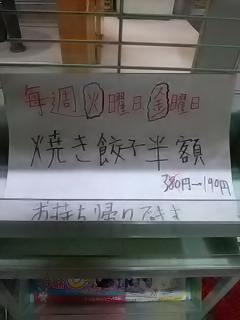 毎週火曜日金曜日
焼き餃子半額
380円→190円
お持ち帰りできま